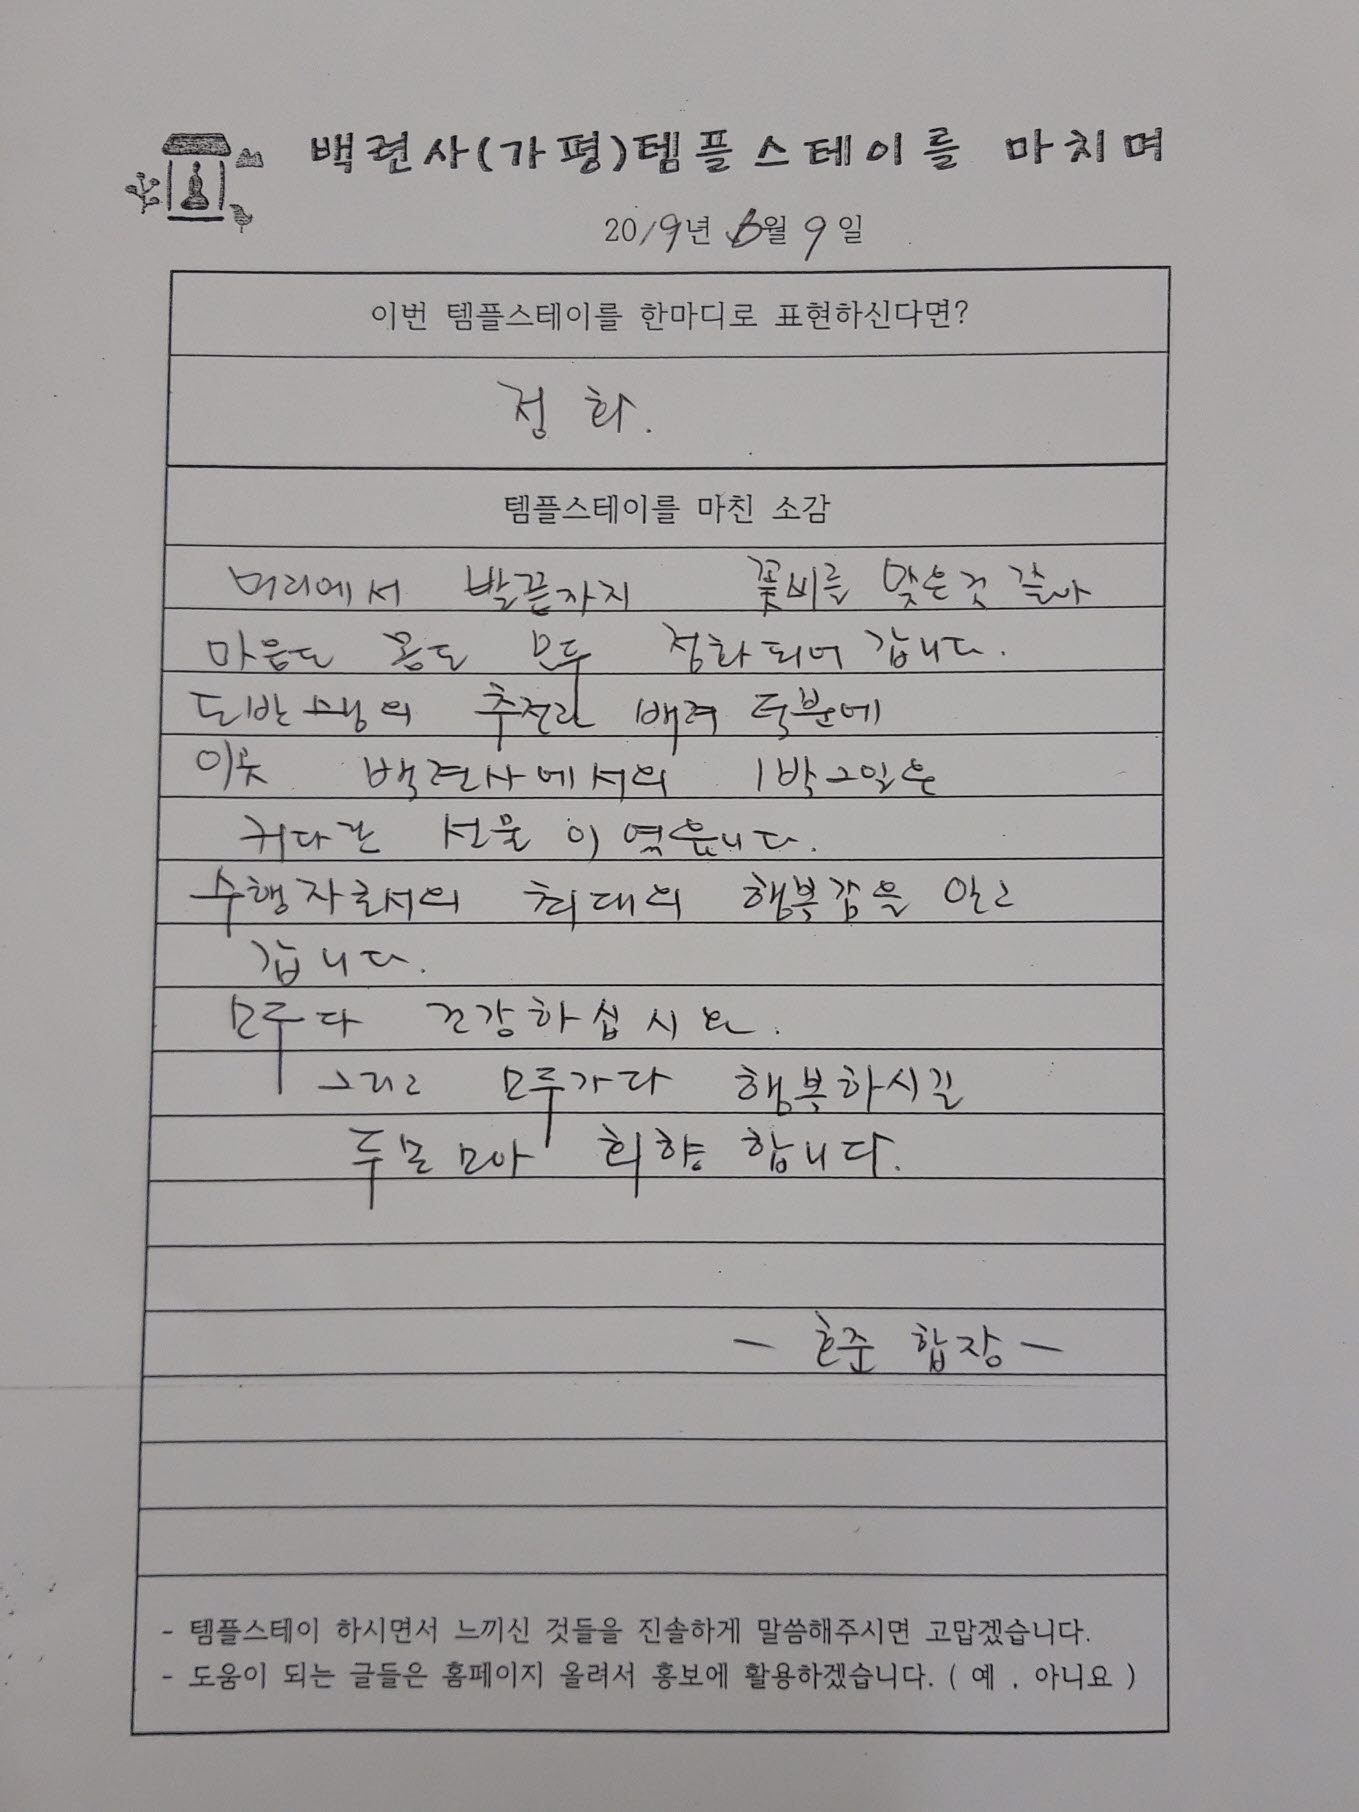 백련사(가평)템플스테이를 마치며
2019년 6월 9일
이번 템플스테이를 한마디로 표현하신다면?
정화.
템플스테이를 마친 소감
머리에서 발끝까지 꽃비를 맞은것 같아
마음도 몸도 모두 정화되어 갑니다.
도반스님의 추천과 배려 덕분에
이곳 백련사에서의 1박2일은
커다란 선물이 였습니다.
수행자로서의 최대의 행복감을 안고
갑니다.
모두다 건강하십시요.
그리고 모두가다 행복하시길
두손모아 회향합니다.
- 효준 합장 -
- 템플스테이 하시면서 느끼신 것들을 진솔하게 말씀해주시면 고맙겠습니다.
- 도움이 되는 글들은 홈페이지 올려서 홍보에 활용하겠습니다. ( 예 , 아니요 )